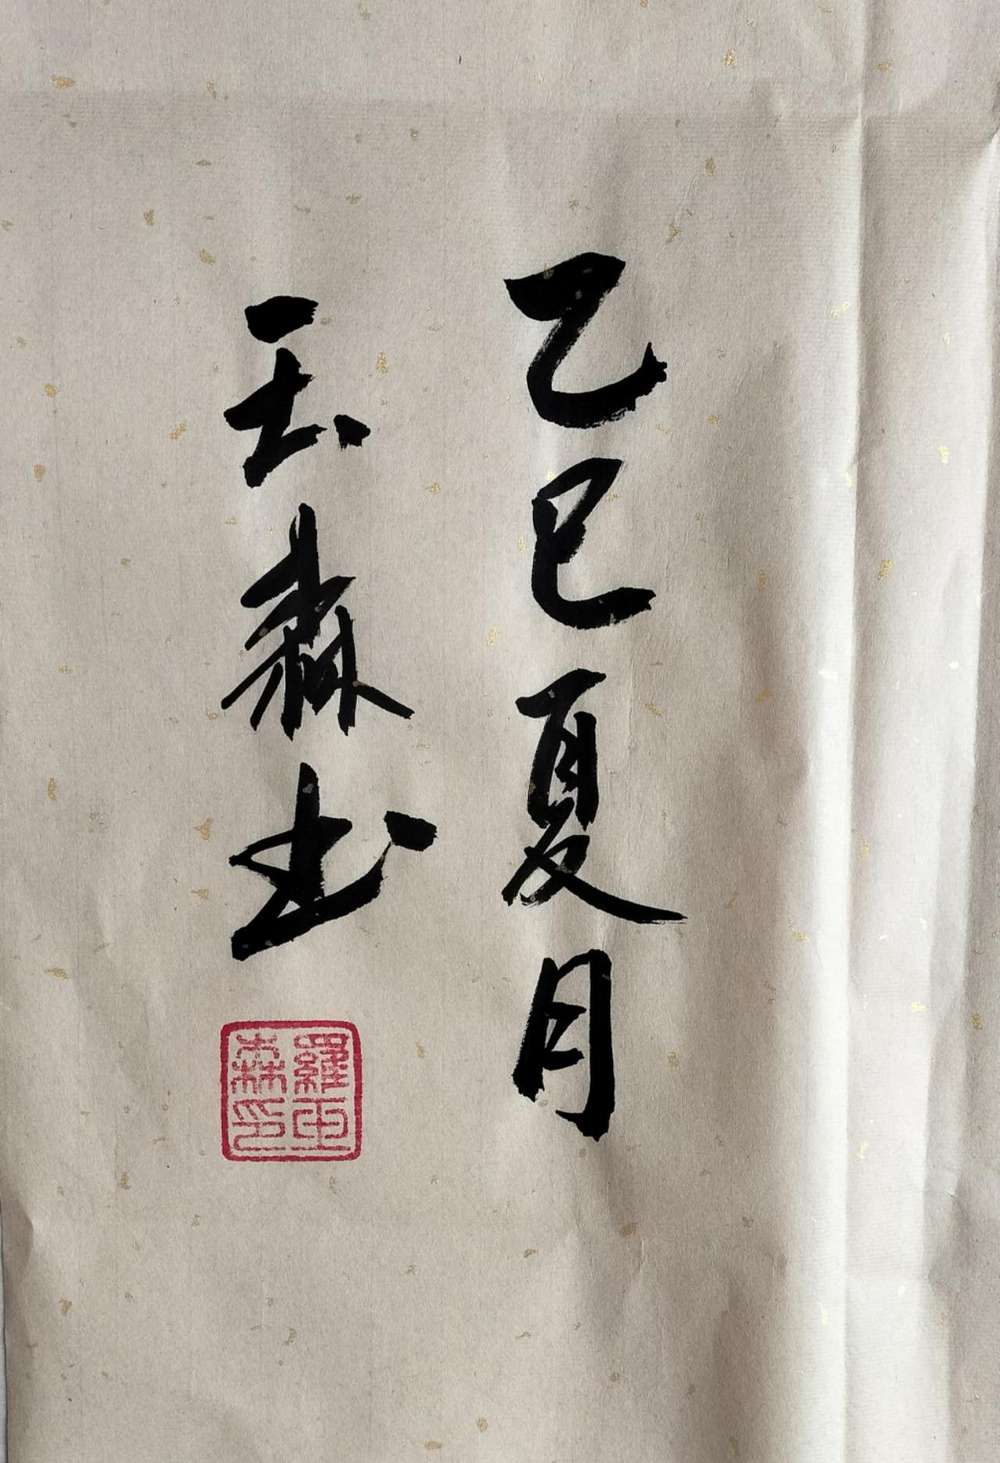 乙巳夏月
玉森书
羅玉
森印